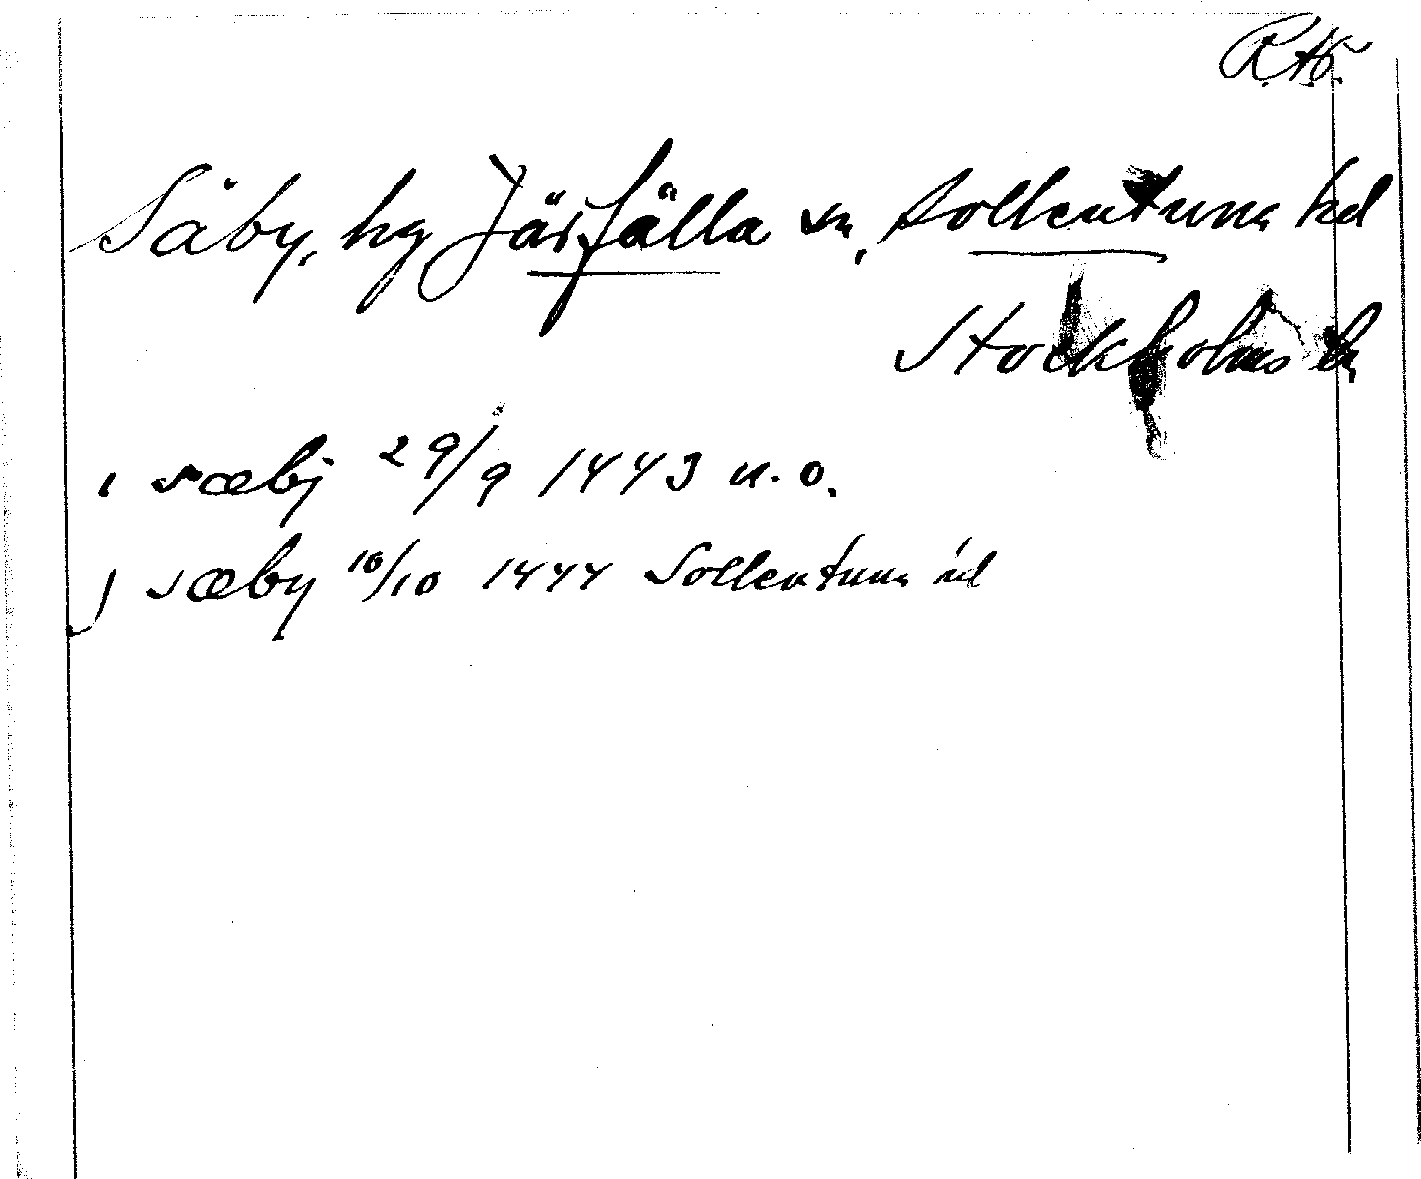 R.A.
Säby, hg Järfälla sn, Sollentuna hd
Stockholms ln
i sæbj 29/9 1443 u.o.
j sæby 10/10 1444 Sollentuna hd